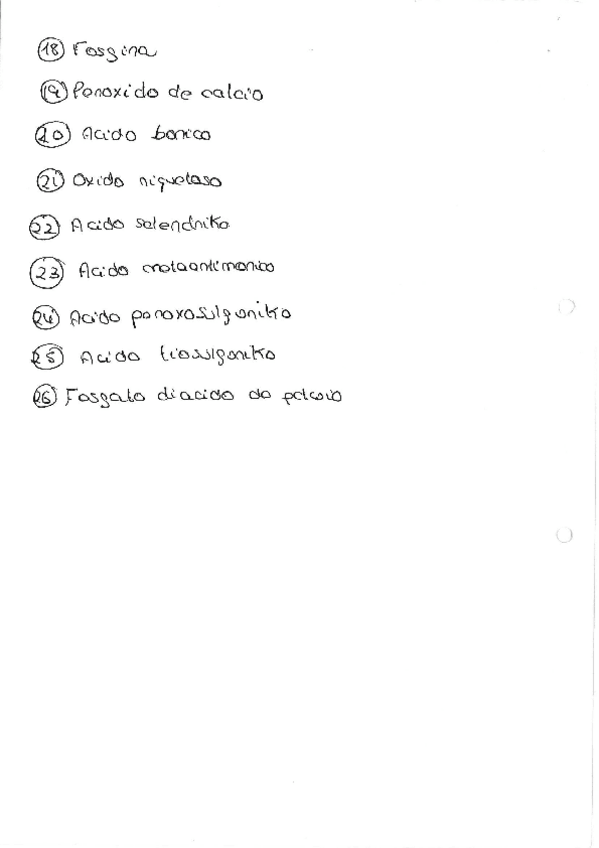 18 Fosgina
19 Peroxido de calcio
20 Acido borico
21 Oxido niqueloso
22 Acido selendriko
23 Acido metaantimonico
24 Acido peroxosulgoriko
25 Acido tiosulgoriko
26 Fosgato diacido de potasio